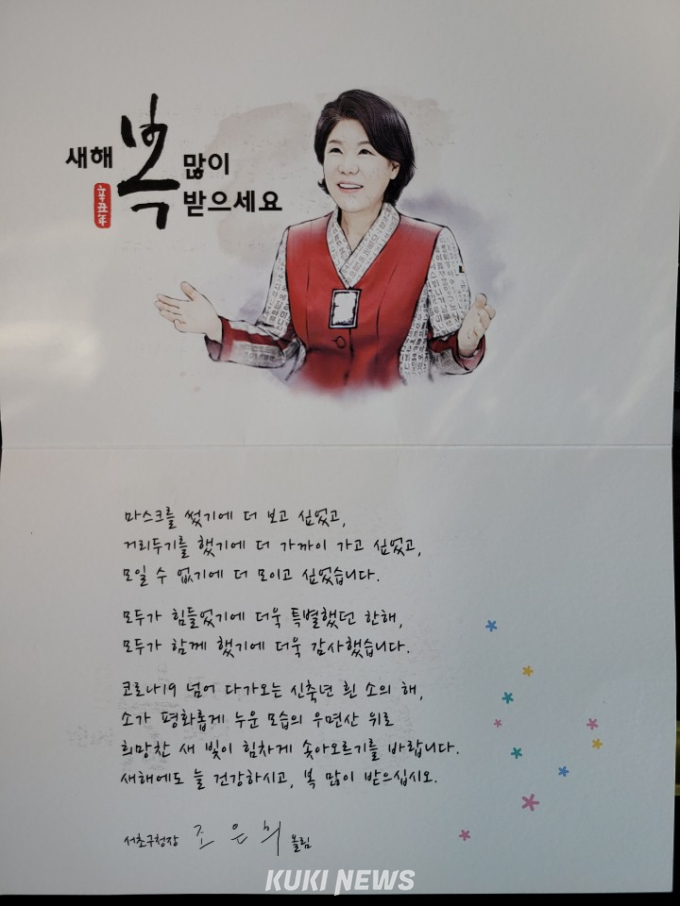 새해 복 많이
받으세요
辛丑年
마스크를 썼기에 더 보고 싶었고,
거리두기를 했기에 더 가까이 가고 싶었고,
모일 수 없기에 더 모이고 싶었습니다.
모두가 힘들었기에 더욱 특별했던 한해,
모두가 함께 했기에 더욱 감사했습니다.
코로나19 넘어 다가오는 신축년 흰 소의 해,
소가 평화롭게 누운 모습의 우면산 위로
희망찬 새 빛이 힘차게 솟아오르기를 바랍니다.
새해에도 늘 건강하시고, 복 많이 받으십시오.
서초구청장 조은희 올림
KUKI NEWS